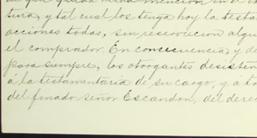 tura, y tal cual los tenga hoy la testa
acciones todas, sin reservacion algu
el comprador. En consecuencia y de
para siempre, los otorgantes desisten
á la testamentaria de su cargo, y á to
del finado señor Escandon, del derec